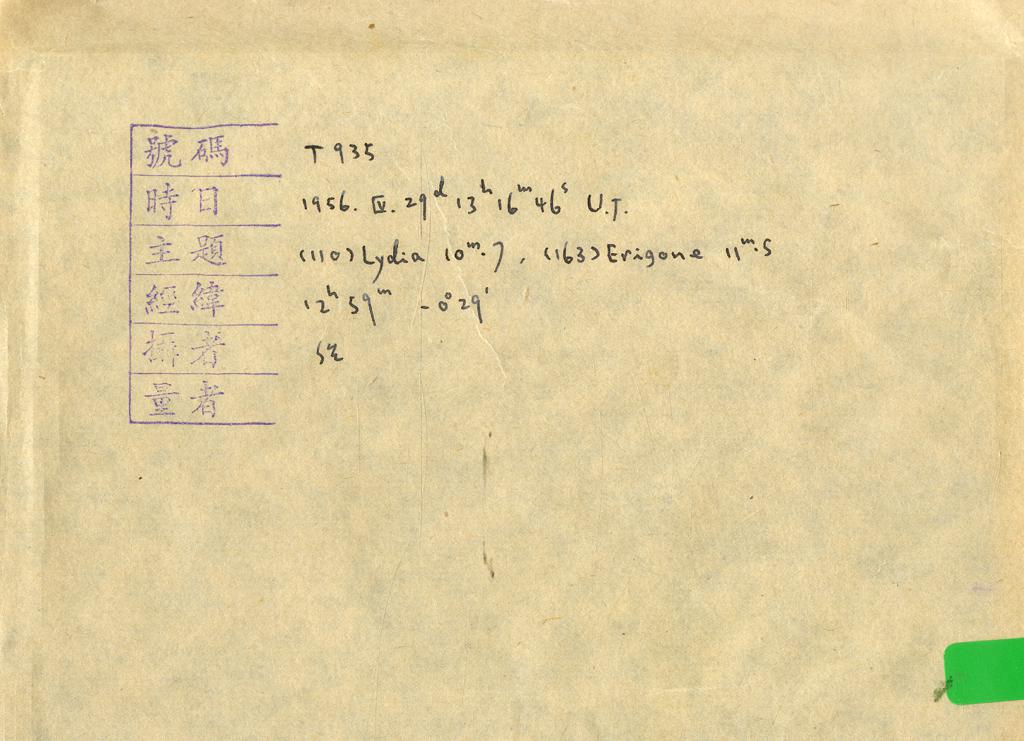 號碼 T 935
時日 1956. IV. 29ᵈ 13ʰ 16ᵐ 46ˢ U.T.
主題 (110) Lydia 10ᵐ.7, (163) Erigone 11ᵐ.5
經緯 12ʰ 59ᵐ -0°29'
攝者
量者